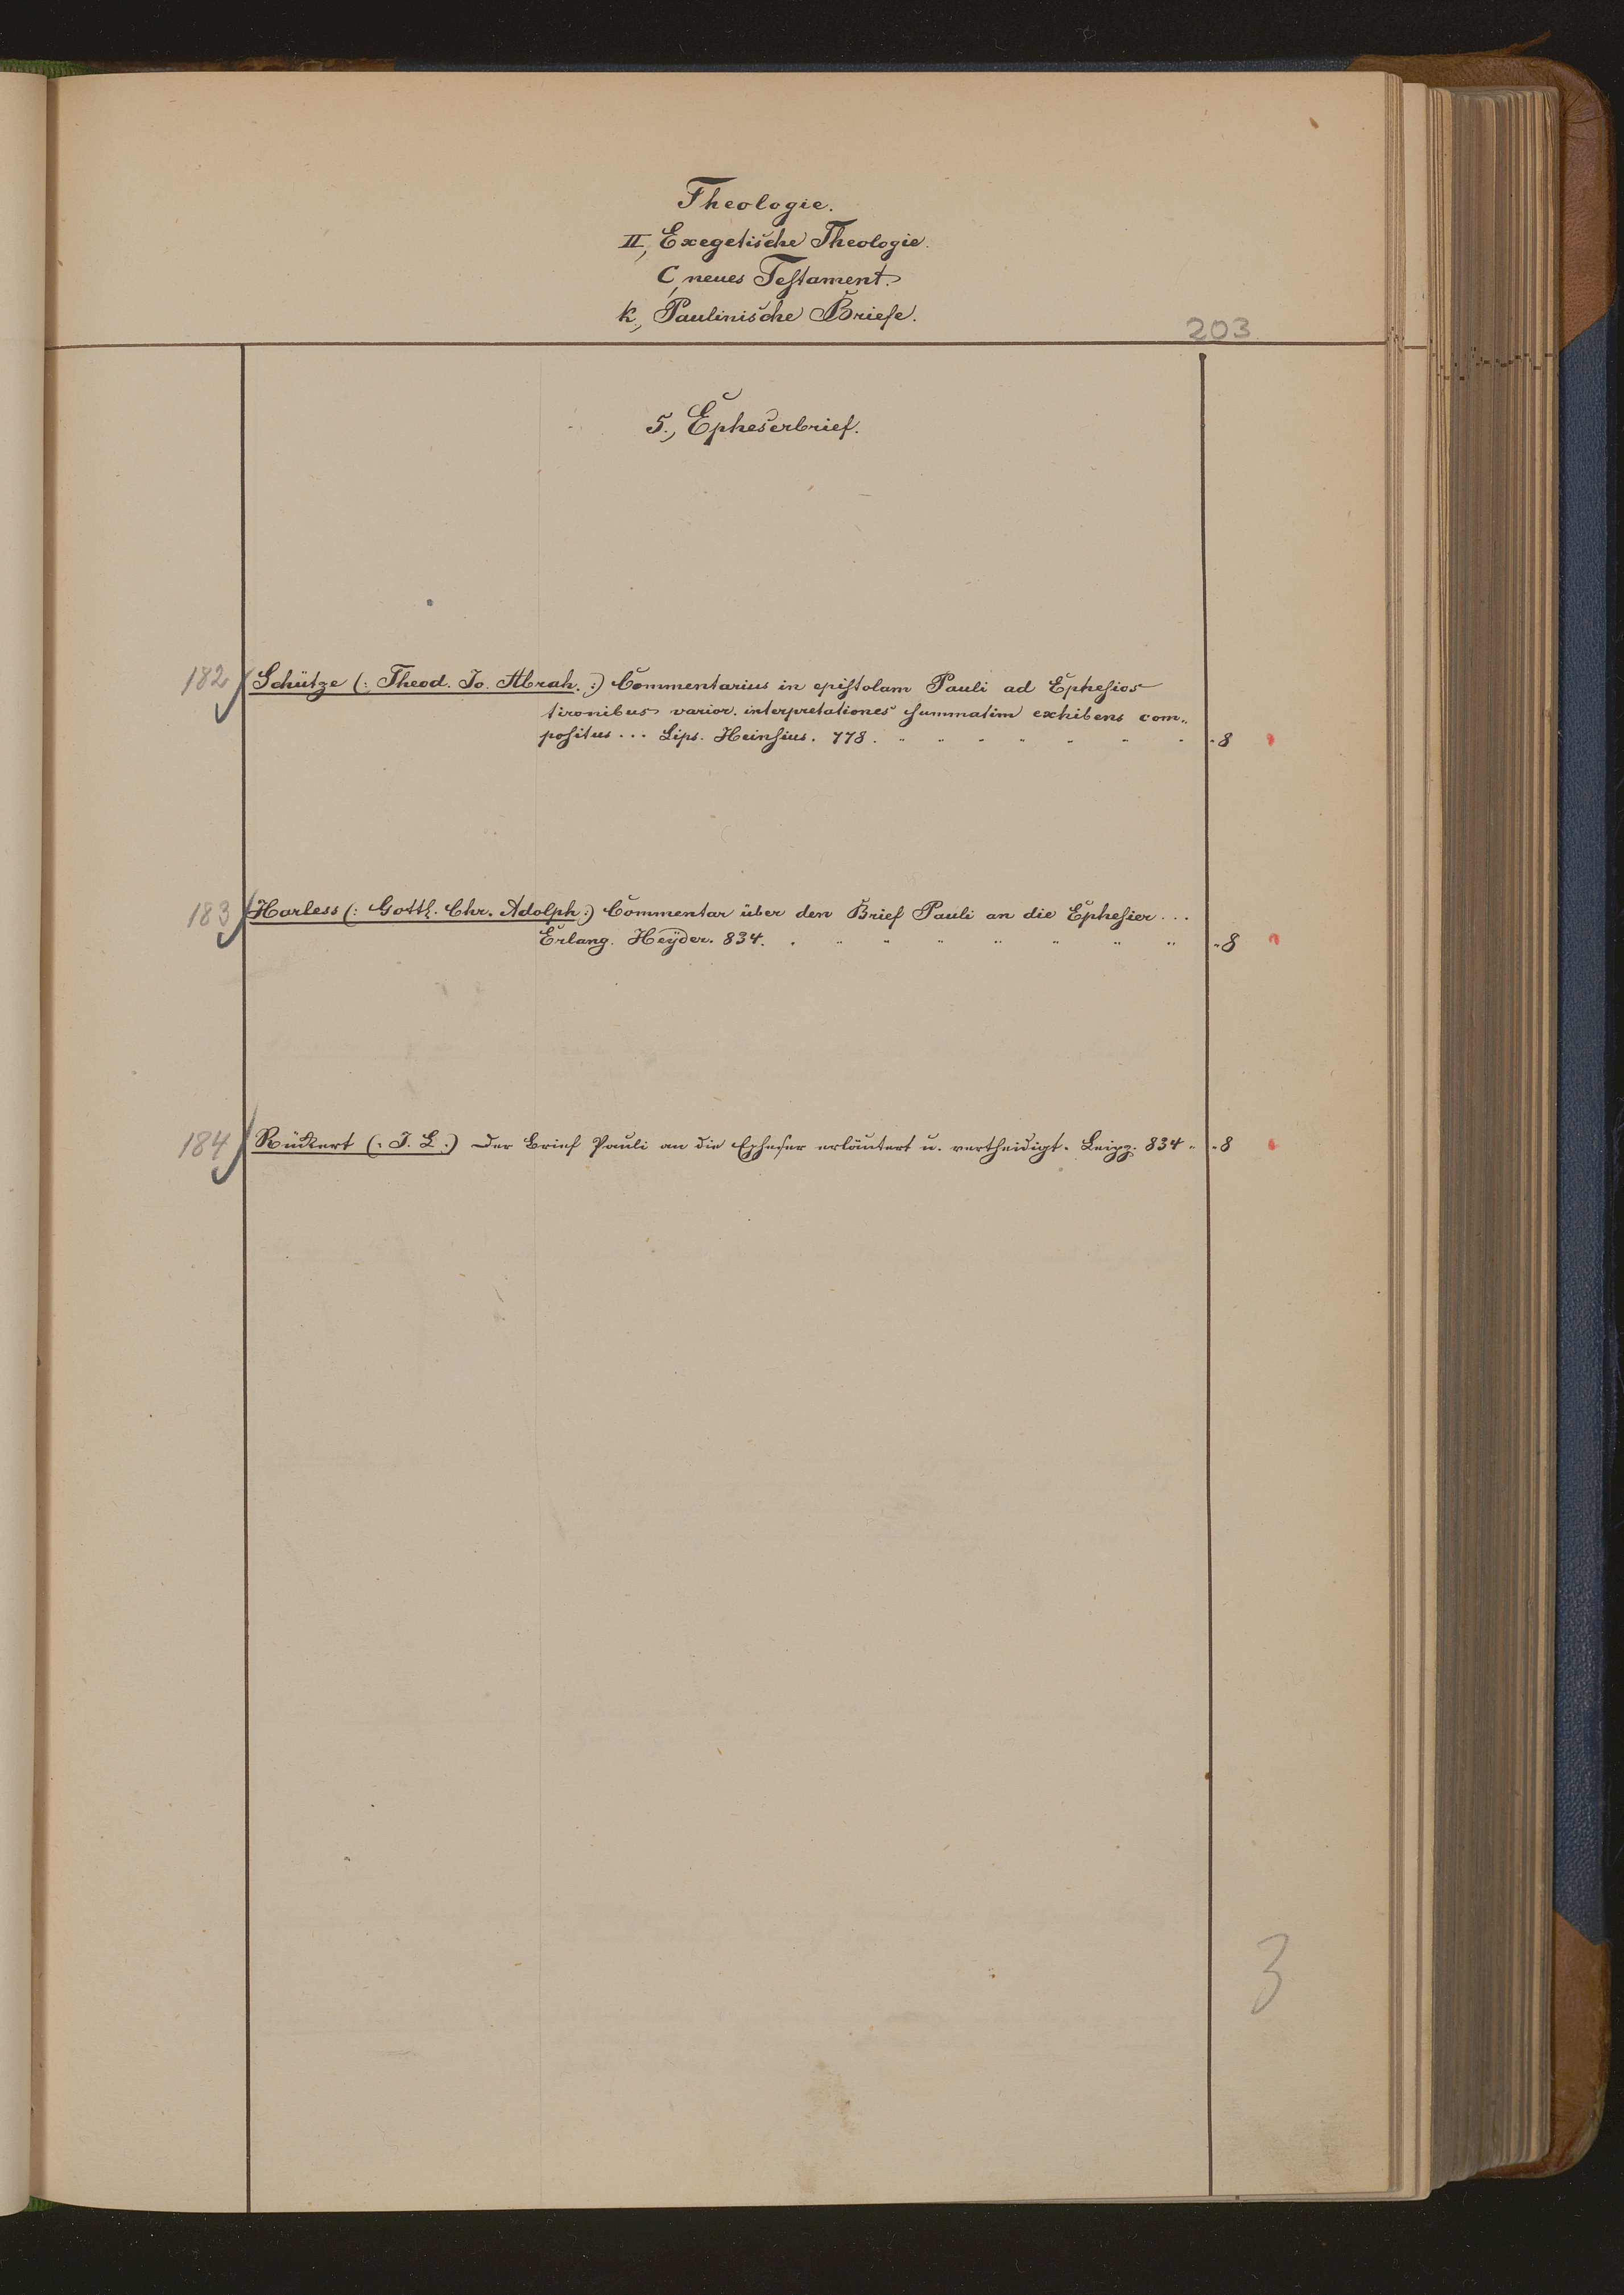 Theologie.
II, Exegetische Theologie.
C, neues Testament.
k., Paulinische Briefe.
203
5., Epheserbrief.
182 Schütze (: Theod. Jo. Abrah. :) Commentarius in epistolam Pauli ad Ephesios
tironibus varior. interpretationes summatim exhibens com„
positus ... Lips. Heinsius. 778. „ „ „ „ „ „ „ „ 8
183 Harless (: Gottl. Chr. Adolph :) Commentar über den Brief Pauli an die Ephesier ...
Erlang. Heÿder. 834. . „ „ „ „ „ „ „ „ 8
184 Rückert (: J. L. :) Der Brief Pauli an die Epheser erläutert u. vertheidigt. Leipz. 834 „ „ 8
3